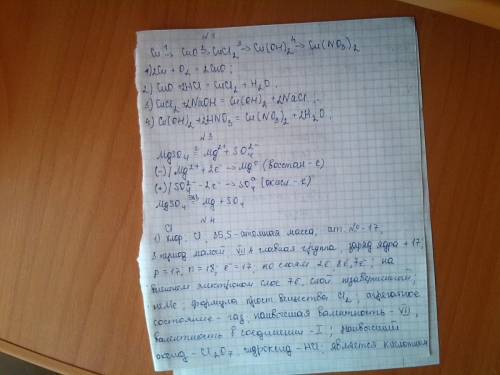 Cu →¹ CuO →² CuCl₂ →³ Cu(OH)₂ →⁴ Cu(NO₃)₂
1) 2Cu + O₂ = 2CuO;
2) CuO + 2HCl = CuCl₂ + H₂O.
3) CuCl₂ + 2NaOH = Cu(OH)₂ + 2NaCl.
4) Cu(OH)₂ + 2HNO₃ = Cu(NO₃)₂ + 2H₂O.
№3
MgSO₄ ⇄ Mg²⁺ + SO₄²⁻
(-) | Mg²⁺ + 2e⁻ → Mg⁰ (восстан-е)
(+) | SO₄²⁻ - 2e⁻ → SO₄⁰ (окисл-е)
MgSO₄ = Mg + SO₄
№4
Cl
1) Хлор. Cl, 35,5-атомная масса, ат. № - 17,
3 период малый VII A главная группа, заряд ядра +17;
p = 17; n = 18; e⁻ = 17; по слоям 2ē 8ē, 7ē; на
внешнем электронном слое 7ē, слой незавершенный;
неМе, формула прост. вещества Cl₂, агрегатное
состояние - газ. наивысшая валентность - VII,
валентность в соединении - I; Наивысший
оксид - Cl₂O₇. гидроксид - HCl является кислотным